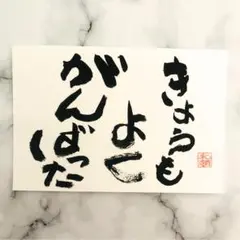 きょうも
よく
がんばった